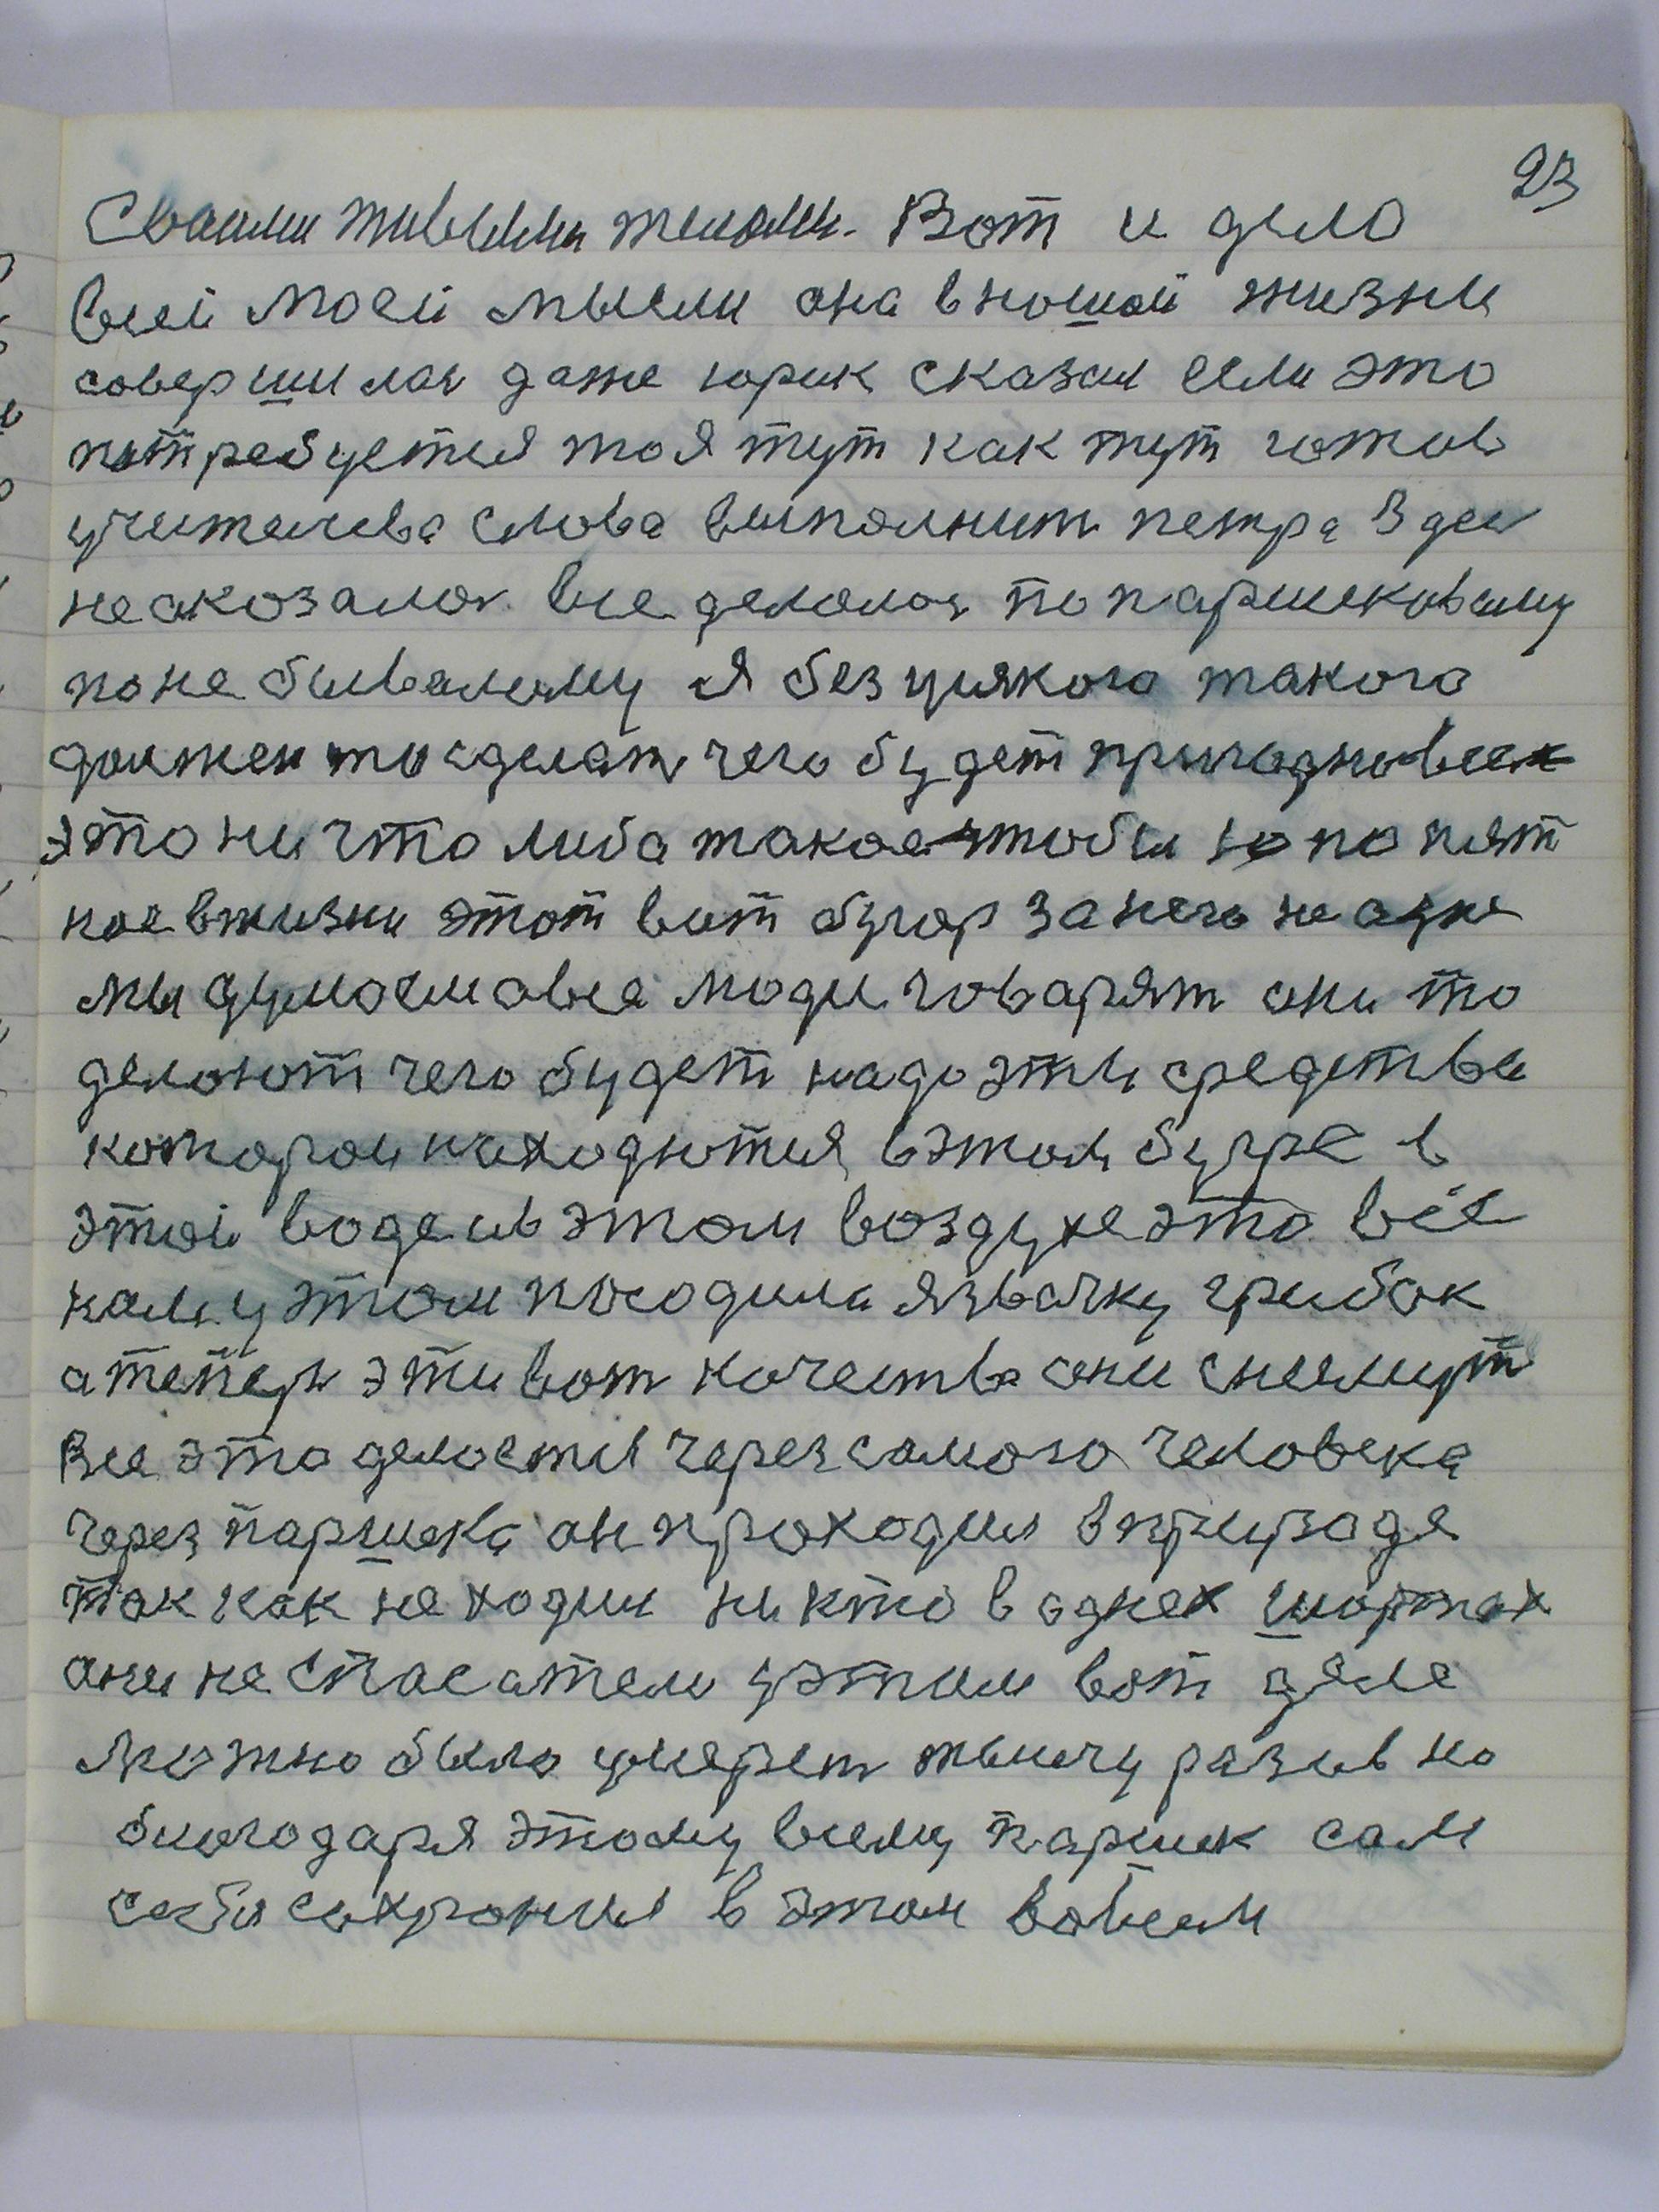 23
Своими живыми телами. Вот и дело
всей моей мысли она в ношай жизни
совершилас даже юрик сказал если это
потребуется то я тут как тут готов
учителева слова выполнит петра Здес
неаказалос все делолос по паршековаму
по небываламу я без усякого такога
должен то зделат чего будет пригодно всех
это ни что либа такое чтобы
ное в жизни этот вот бугор за него не адне
мы думаем а все люди говарят они то
делоют чего будет надо эти средства
которои находются в этом бугре в
этой воде и в этом воздухе это всё
нам у этом посодила язвачку грибок
а тепер эти вот качества они снимут
Все это делоется через самого человека
через паршека он проходил в природе
так как не ходил ни кто в аднех шортах
они не спасатели у этим вот деле
можно было умерет тысечу разив но
благодаря этому всему паршек сам
себя сохронил в этом вовсем